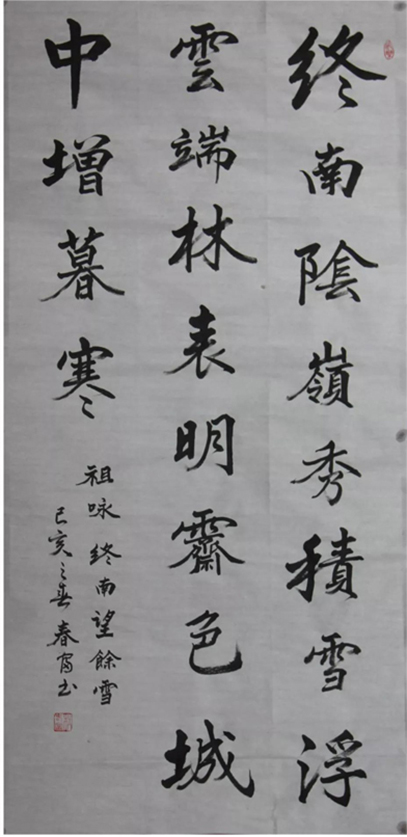 終南陰嶺秀積雪浮
雲端林表明霽色城
中增暮寒
祖咏終南望餘雪
己亥之春春寫书